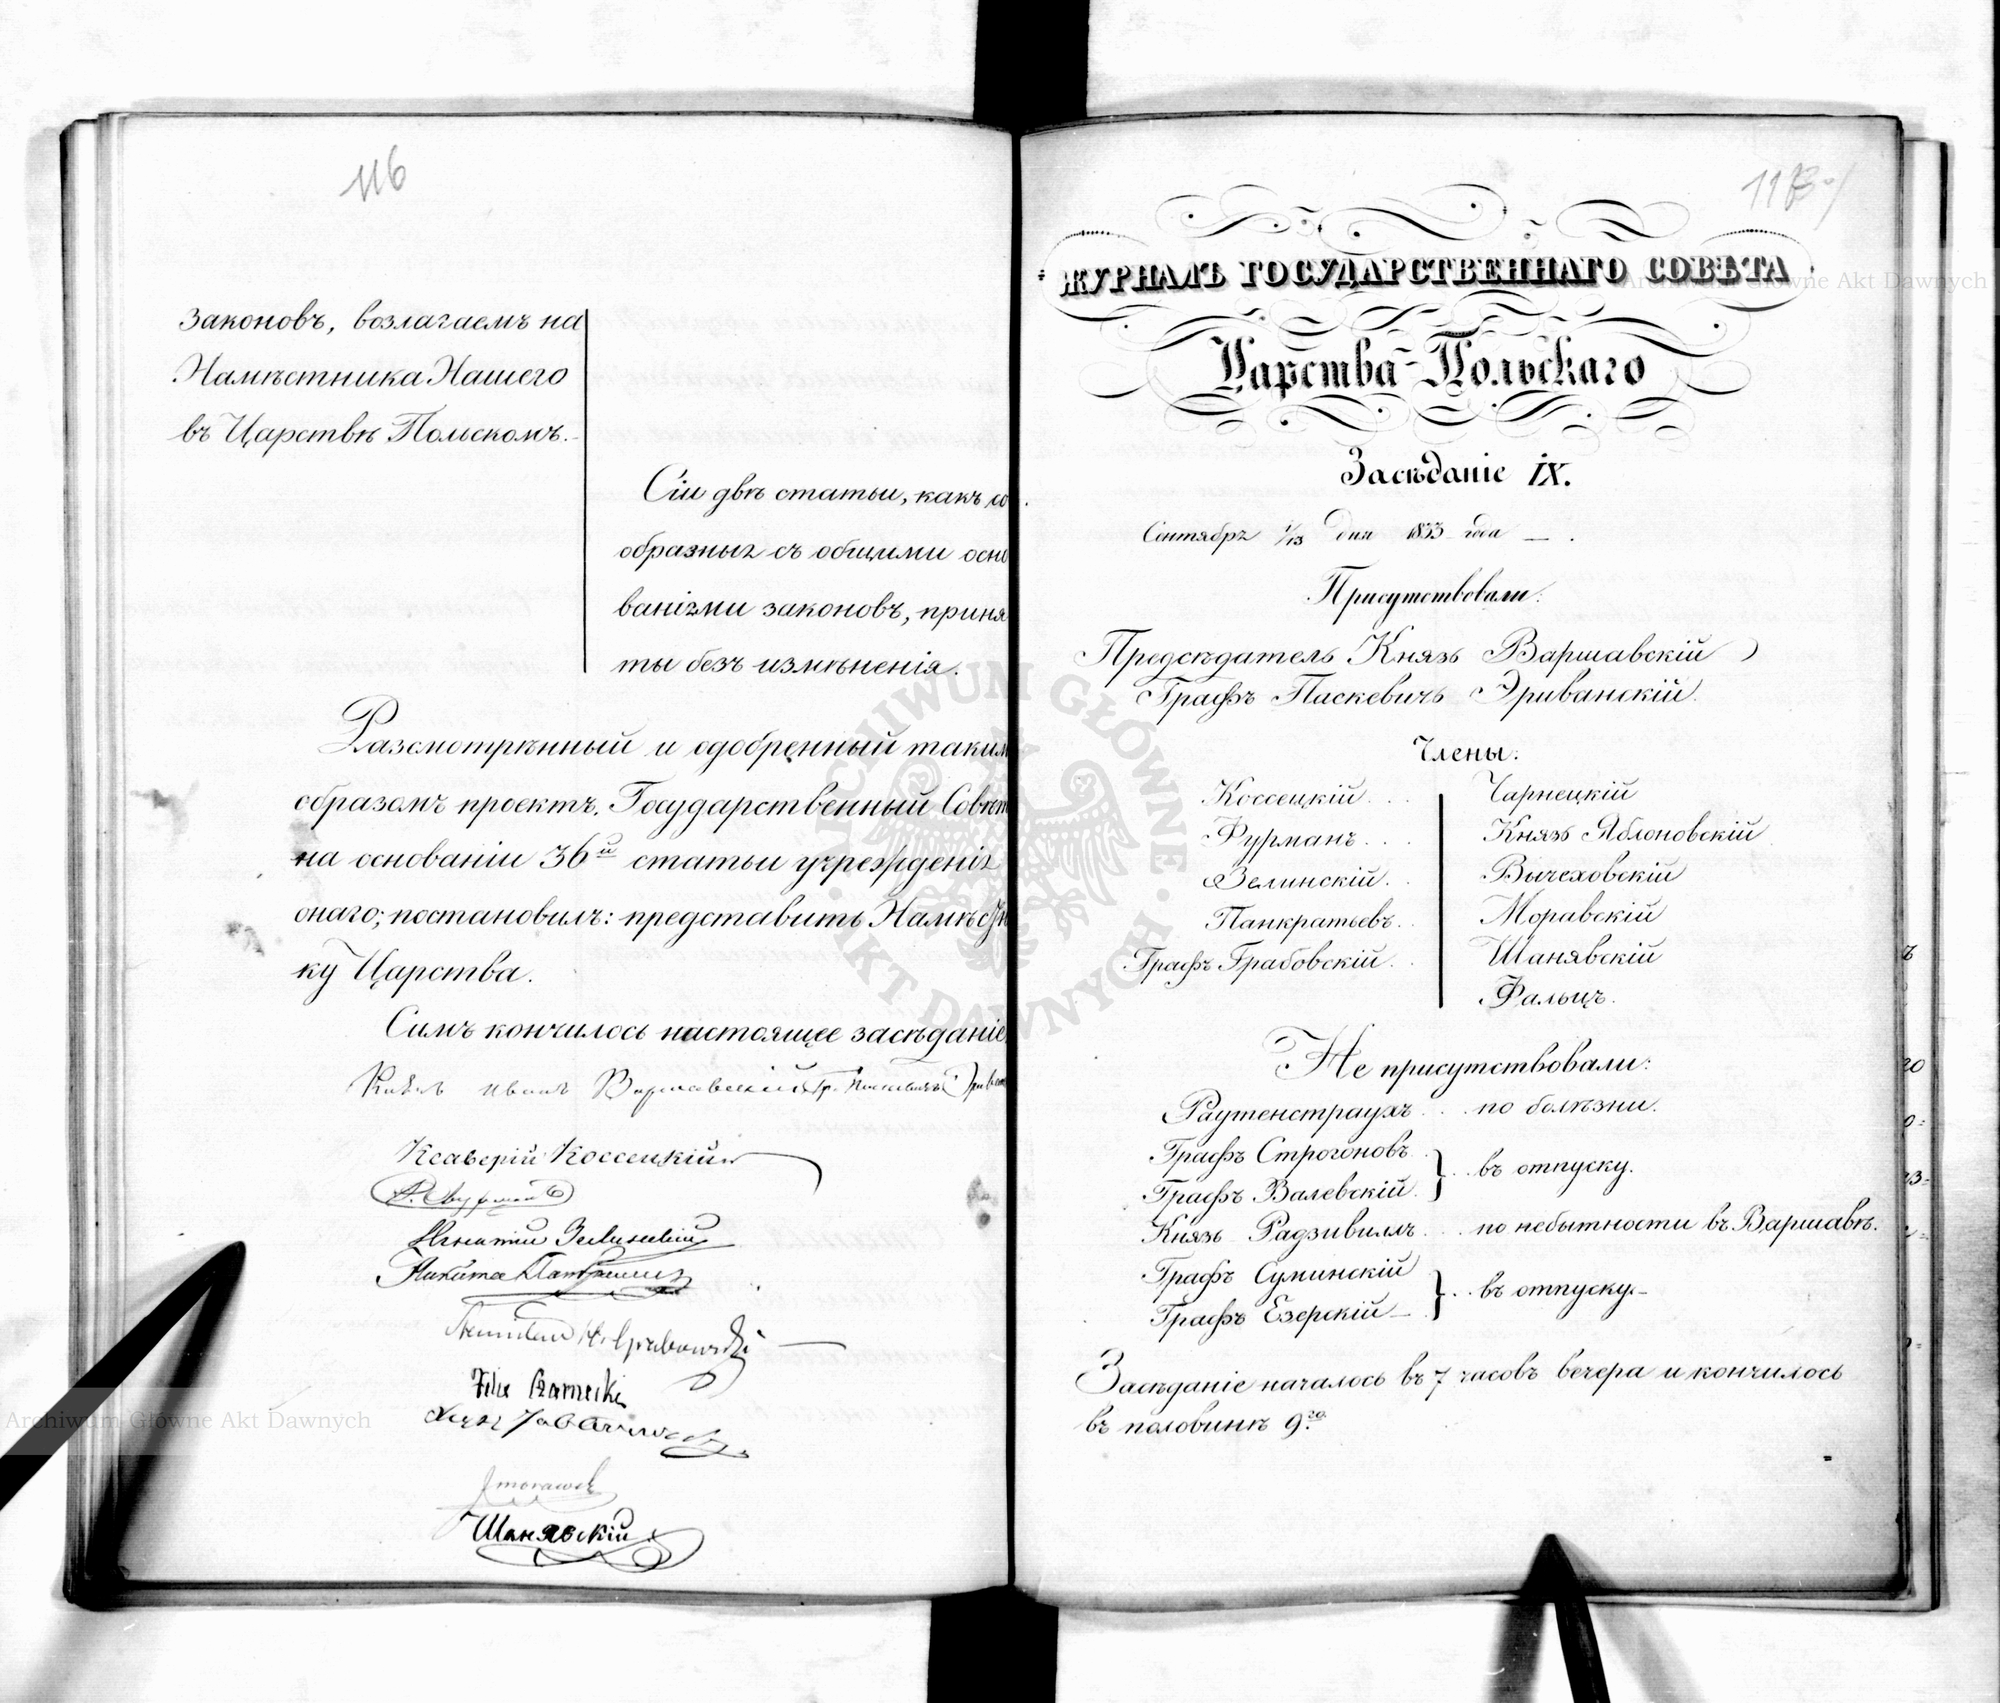 116
законовъ, возлагаемъ на
Намѣстника Нашего
въ Царствѣ Польскомъ.
Сіи двѣ статьи, какъ со
образныя съ общими осно
ваніями законовъ, приня
ты безъ измѣненія.
Разсмотрѣнный и одобренный таким
образомъ проектъ, Государственный Совѣт
на основаніи 36й статьи учрежденія
онаго, постановилъ: представить Намѣстни
ку Царства.
Симъ кончилось настоящее засѣданіе.
Князь Варшавскій Гр. Паскевичъ Эриван
Ксаверій Коссецкій
Фурманъ
Игнатій Зелинскій
Никита Панкратьев
Grabowski
Czarnecki
Morawsk
Шанявскій
ЖУРНАЛЪ ГОСУДАРСТВЕННАГО СОВѢТА
Царства Польскаго
Засѣданіе IX.
Сентябрь 1/13 дня 1833 года
Присутствовали:
Предсѣдатель Князь Варшавскій
Графъ Паскевичъ Эриванскій.
Члены:
Коссецкій . . .
Фурманъ . . .
Зелинскій . .
Панкратьевъ . .
Графъ Грабовскій . .
Чарнецкій
Князь Яблоновскій
Вычеховскій
Моравскій
Шанявскій
Фальцъ.
Не присутствовали:
Раутенстраухъ . . . по болѣзни.
Графъ Строгоновъ
Графъ Валевскій
. . въ отпуску.
Князь Радзивилъ . . . по небытности въ Варшавѣ.
Графъ Суминскій
Графъ Езерскій
. . въ отпуску.
Засѣданіе началось въ 7 часовъ вечера и кончилось
въ половинѣ 9го.
ARCHIWUM GŁÓWNE AKT DAWNYCH
Archiwum Główne Akt Dawnych
Archiwum Główne Akt Dawnych